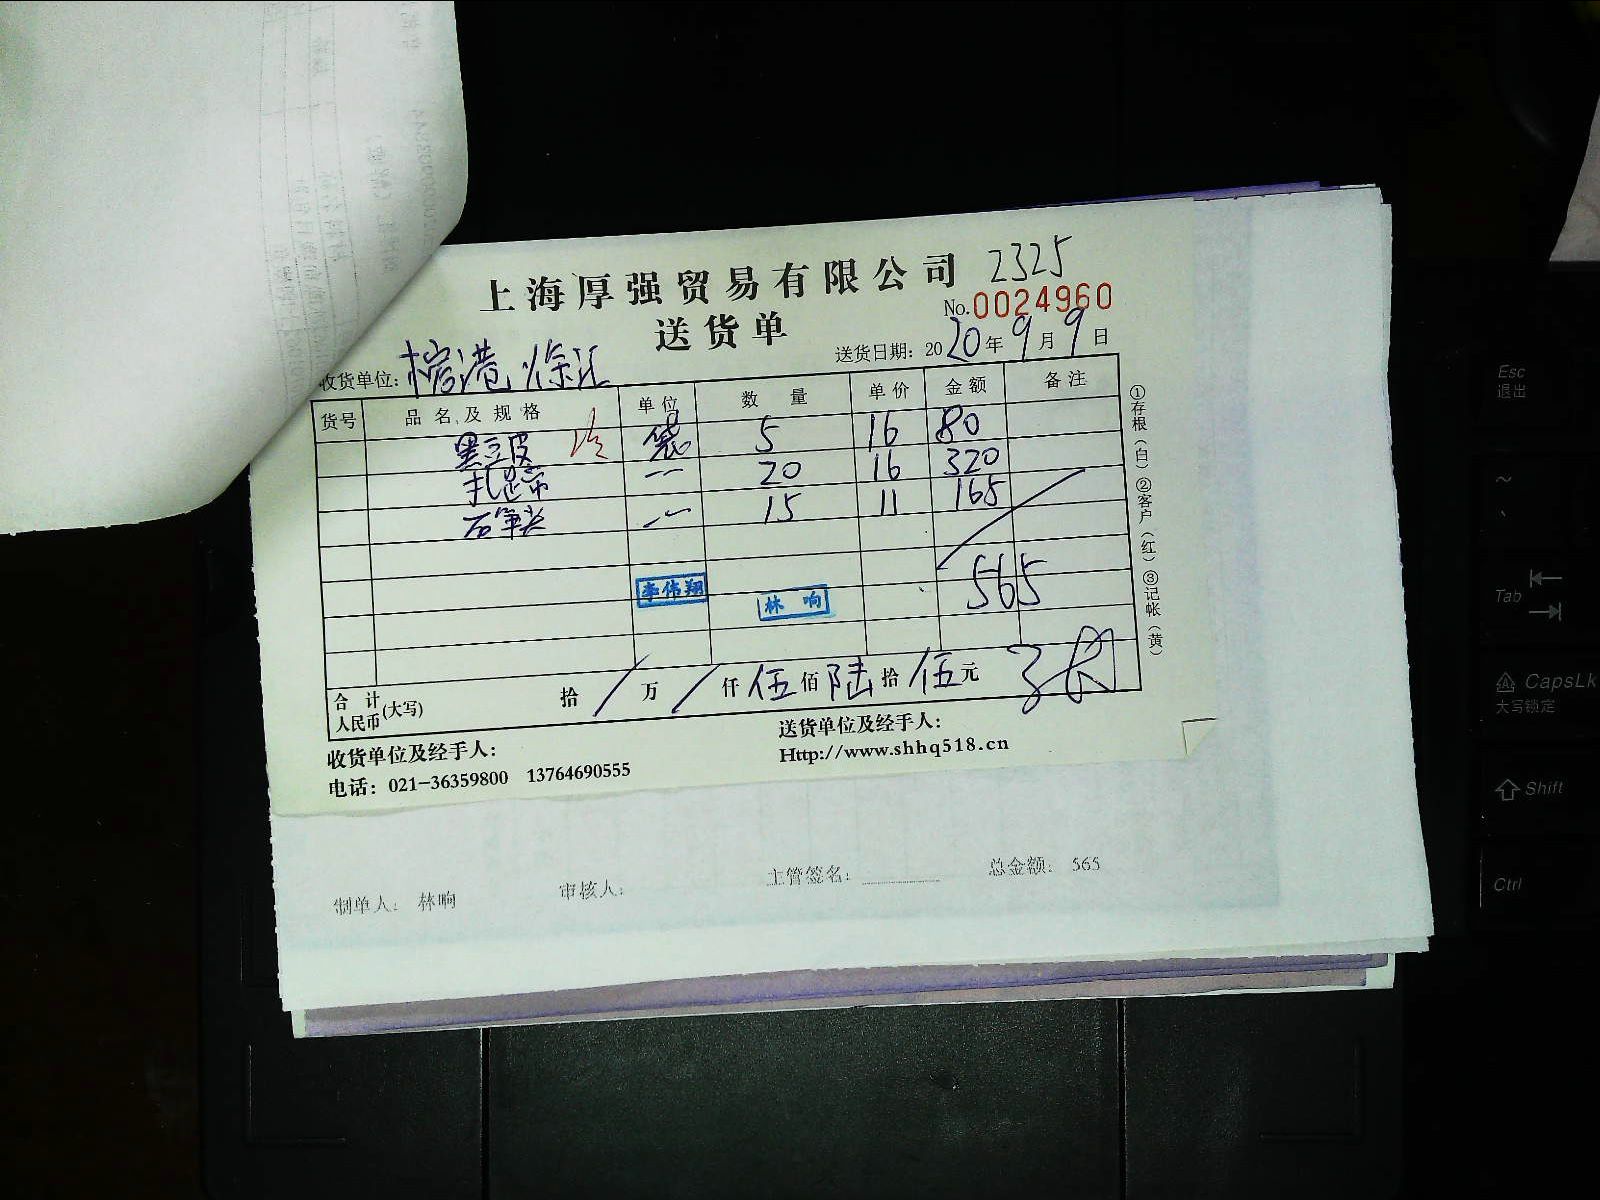 上海厚强贸易有限公司 2325
No.0024960
送货单
收货单位: 榕港 徐汇 送货日期: 2020年9月9日
货号 品名及规格 单位 数量 单价 金额 备注
黑豆皮 袋 5 16 80
扎蹄 20 16 320
石笋尖 15 11 165
565
李伟翔 林响
合计人民币(大写) 拾/万/仟伍佰陆拾伍元
收货单位及经手人: 送货单位及经手人:
电话: 021-36359800 13764690555 Http://www.shhq518.cn
①存根(白)②客户(红)③记帐(黄)
制单人: 林响 审核人: 主管签名: 总金额: 565
Esc
退出
Tab
CapsLk
大写锁定
Shift
Ctrl